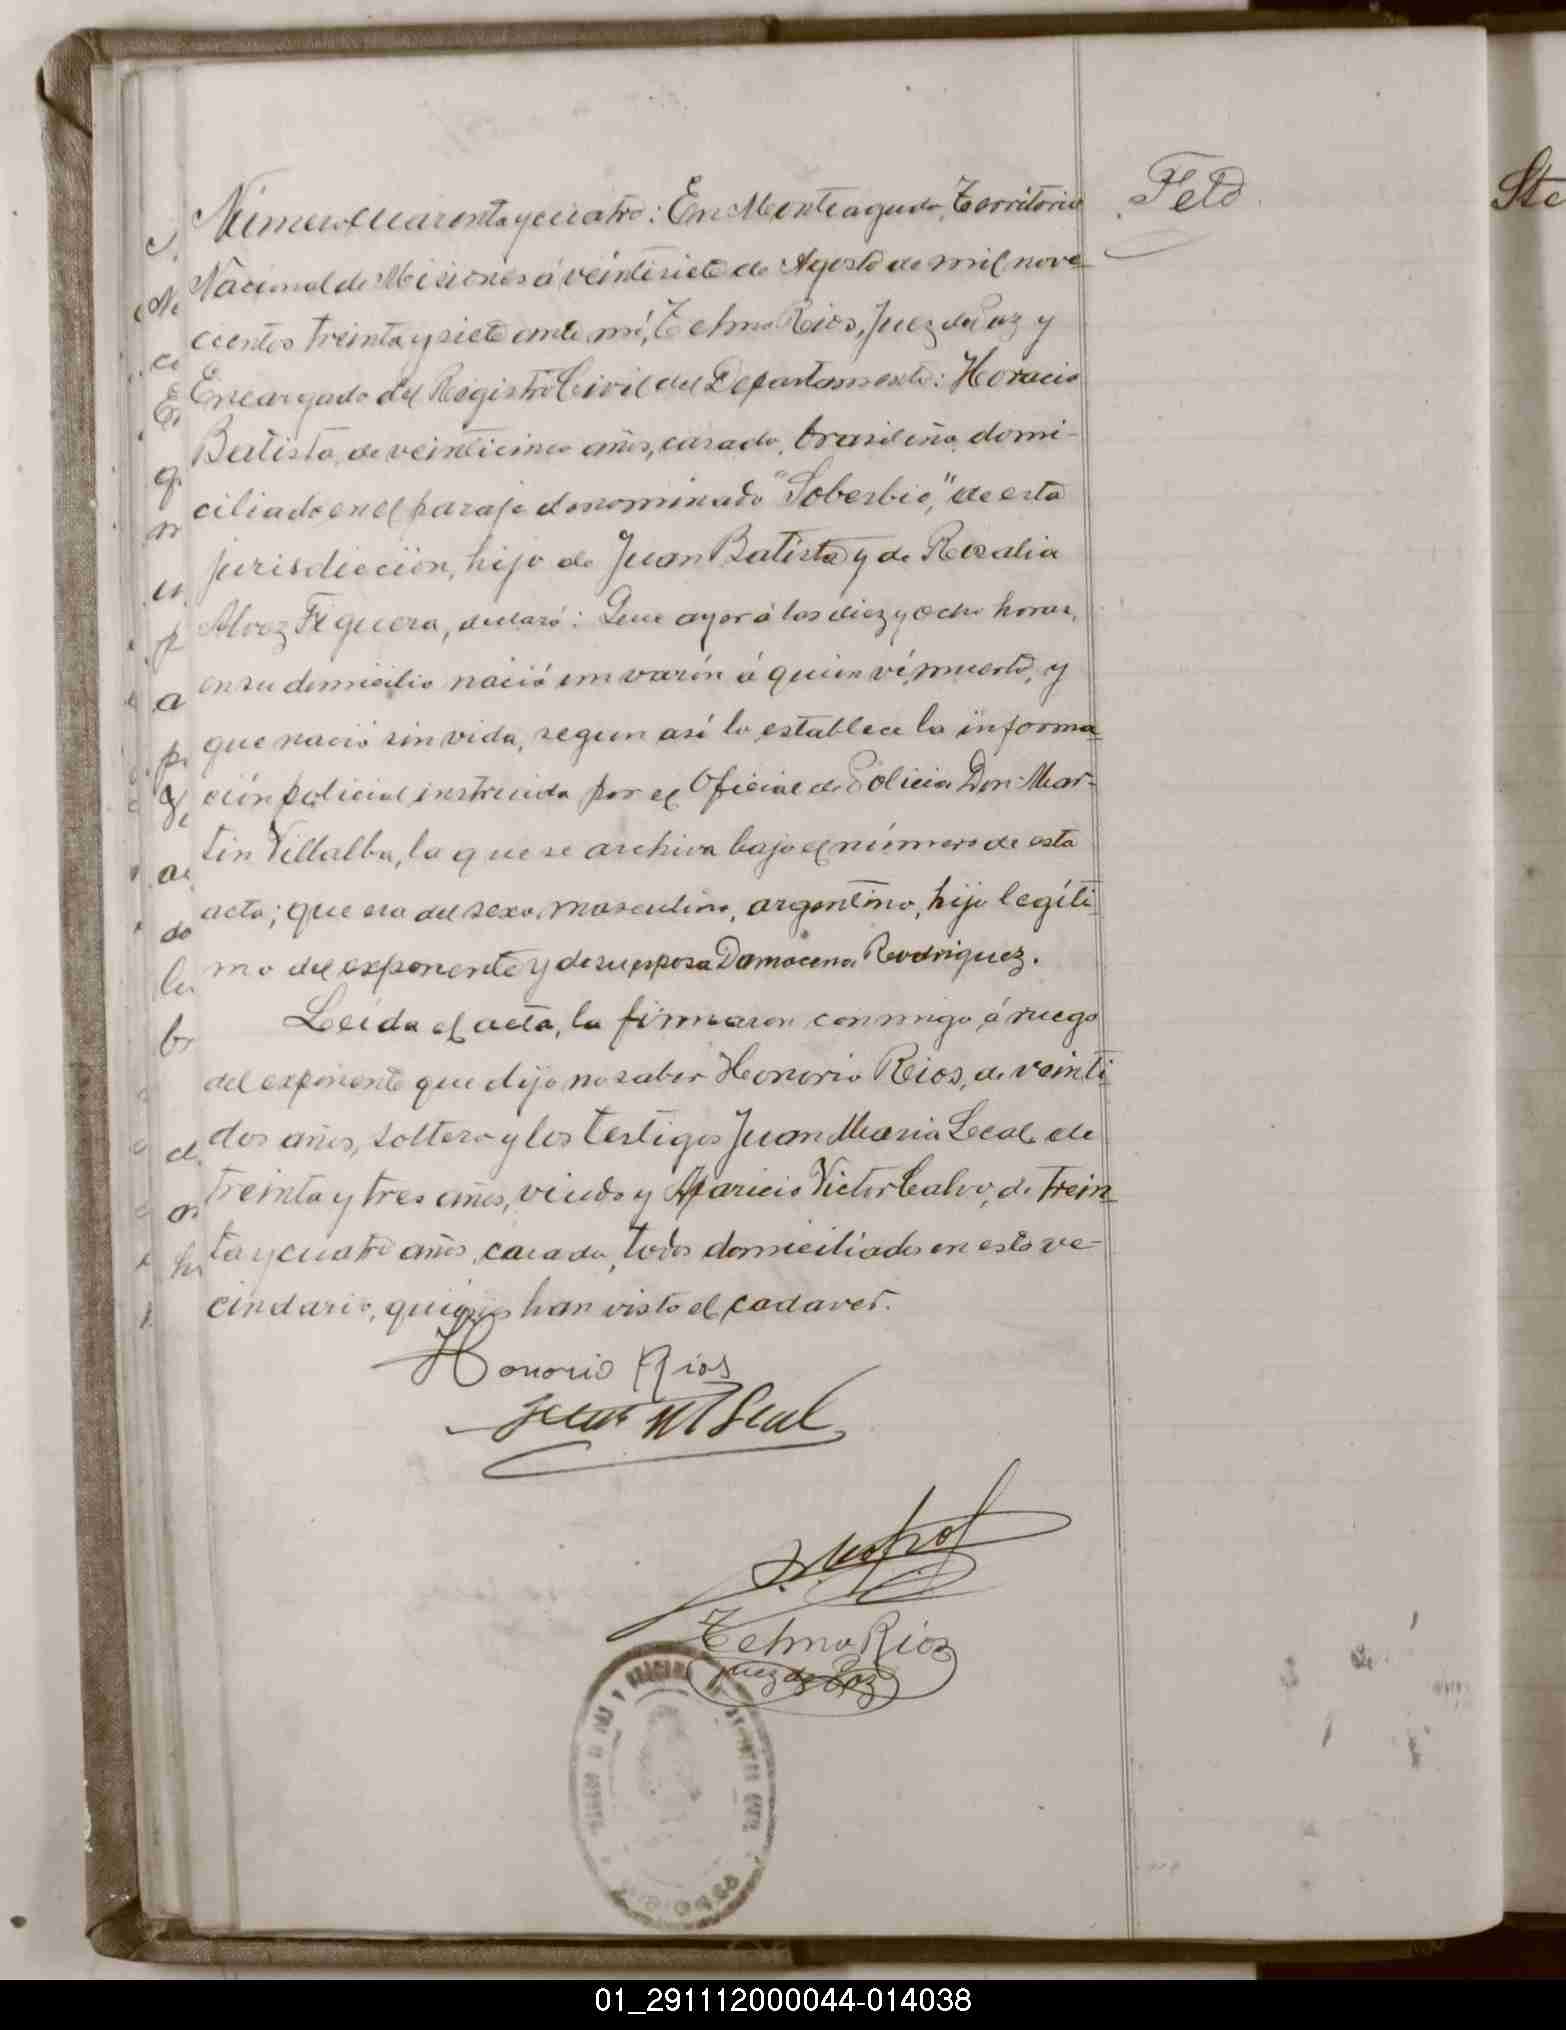 Número cuarenta y cuatro: En Monteagudo, Territorio
Feto
Nacional de Misiones á veintisiete de Agosto de mil nove-
cientos treinta y siete ante mí, Telmo Rios, Juez de Paz y
Encargado del Registro Civil del Departamento: Horacio
Batista, de veinticinco años, casado, brasileño, domi-
ciliado en el paraje denominado "Soberbio," de esta
jurisdicción, hijo de Juan Batista y de Rosalia
Alvez Figuera, declaró: Que ayer á las diez y ocho horas,
en su domicilio nació un varón á quien ví muerto, y
que nació sin vida, segun así lo establece la informa-
ción policial instruida por el Oficial de Policia Don Mar-
tin Villalba, la que se archiva bajo el número de esta
acta; que era del sexo masculino, argentino, hijo legíti-
mo del exponente y de su esposa Damacena Rodriguez.
Leída el acta, la firmaron conmigo á ruego
del exponente que dijo no saber Honorio Rios, de veinti
dos años, soltero y los testigos Juan Maria Leal, de
treinta y tres años, viudo y Aparicio Victor Calvo, de trein
ta y cuatro años, casado, todos domiciliados en este ve-
cindario, quienes han visto el cadaver.
Honorio Rios
Juan M Leal
Telmo Rios
Juez de Paz
01_291112000044-014038